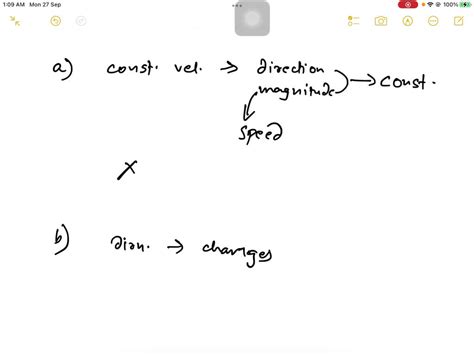 1:09 AM Mon 27 Sep
100%
a) const. vel. → direction
magnitude → const.
speed
x
b) dirn. → changes